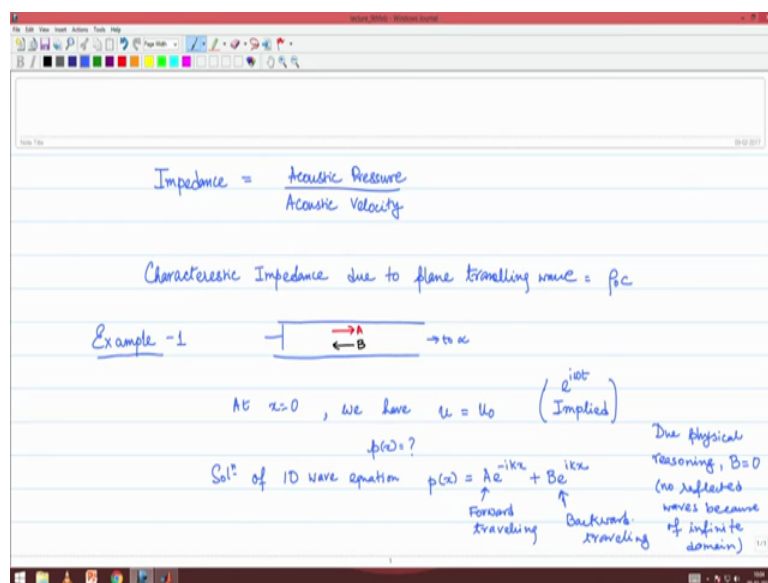 lecture_RNNG - Windows Journal
File Edit View Insert Actions Tools Help
Page Width
B I
Note Title
Impedance = Acoustic Pressure
Acoustic Velocity
Characteristic Impedance due to plane travelling wave = ρ₀c
Example -1
A
B
→ to ∝
At x=0 , we have u = u₀ (e^{iωt} Implied)
p(x) = ?
Solⁿ of 1D wave equation p(x) = Ae^{-ikx} + Be^{ikx}
Forward traveling
Backward traveling
Due physical
reasoning, B=0
(no reflected
waves because
of infinite
domain)
1/1